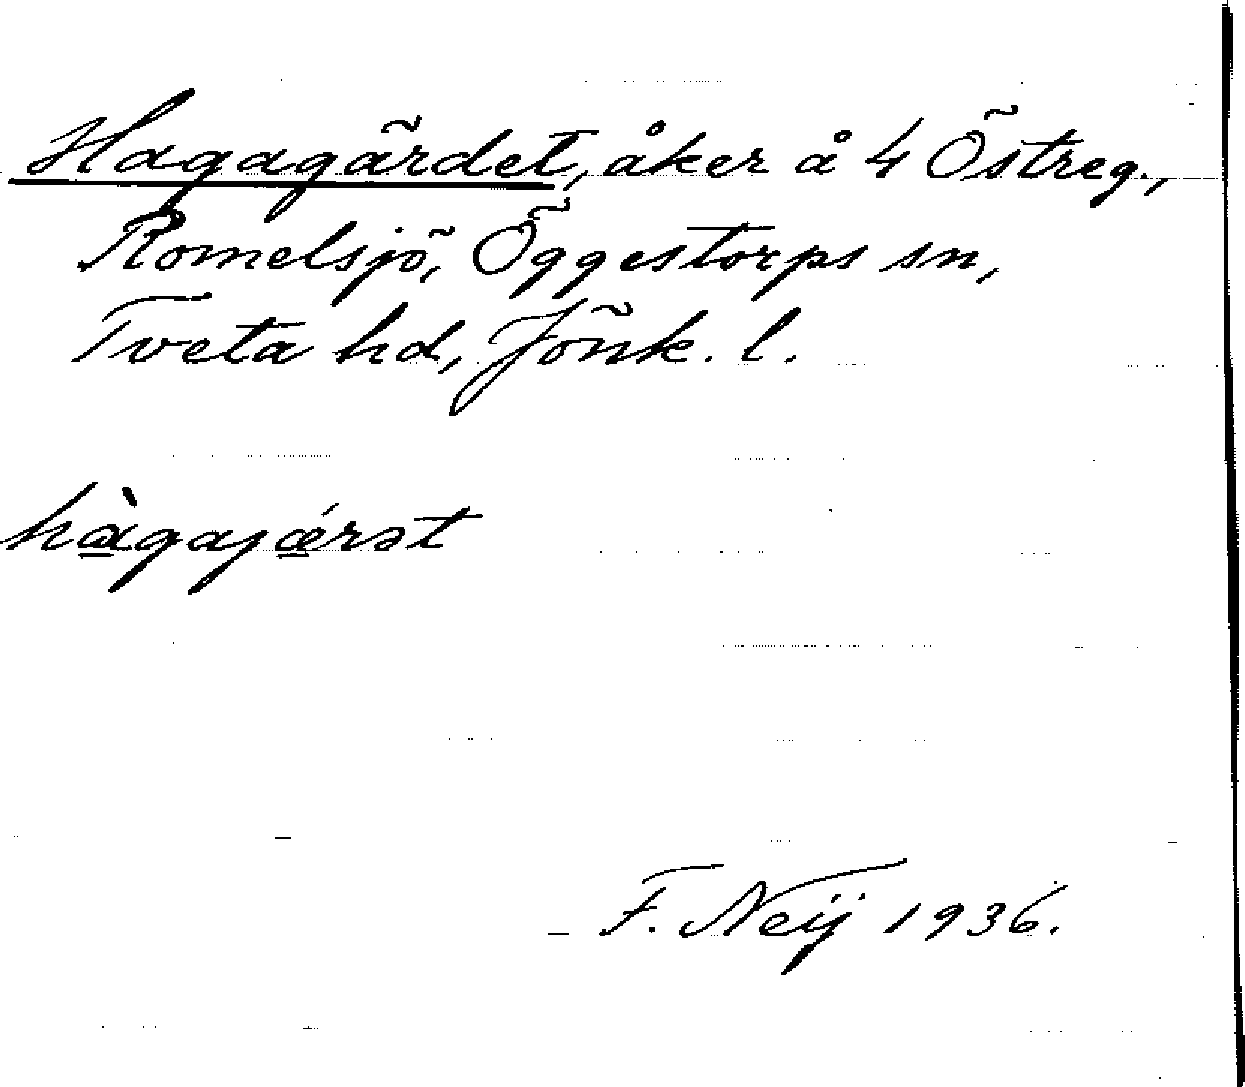 Hagagärdet, åker å 4 Östreg.,
Romelsjö, Öggestorps sn,
Tveta hd, Jönk. l.
hàgajǽrət
F. Neij 1936.